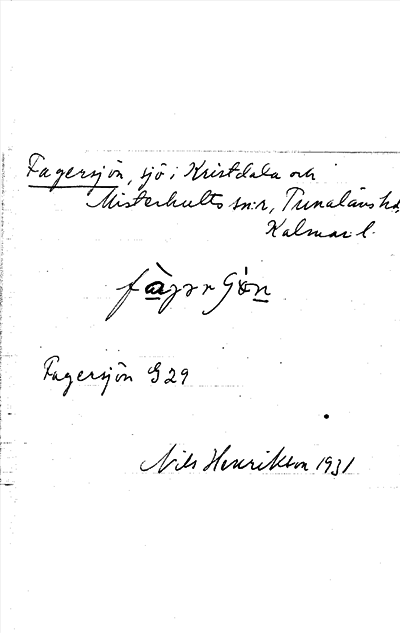 Fagersjön, sjö i Kristdala och
Misterhults snr, Tunaläns hd,
Kalmar l.
Fagersjön G 29
Nils Henrikson 1931